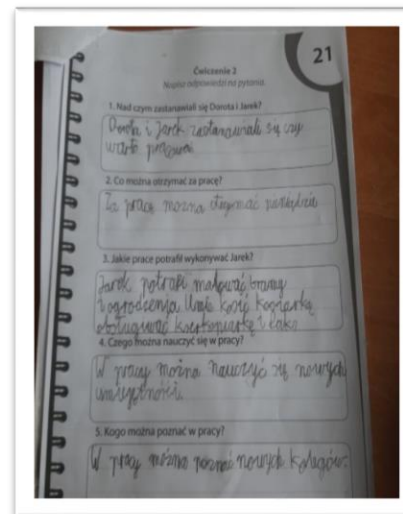 21
Ćwiczenie 2
Napisz odpowiedzi na pytania.
1. Nad czym zastanawiali się Dorota i Jarek?
Dorota i Jarek zastanawiali się czy
warto pracować.
2. Co można otrzymać za pracę?
Za pracę można otrzymać
3. Jakie prace potrafił wykonywać Jarek?
Jarek potrafił malować bramy
i ogrodzenia Umie kosić
obsługiwać i
4. Czego można nauczyć się w pracy?
W pracy można nauczyć się nowych
umiejętności.
5. Kogo można poznać w pracy?
W pracy można poznać nowych kolegów.